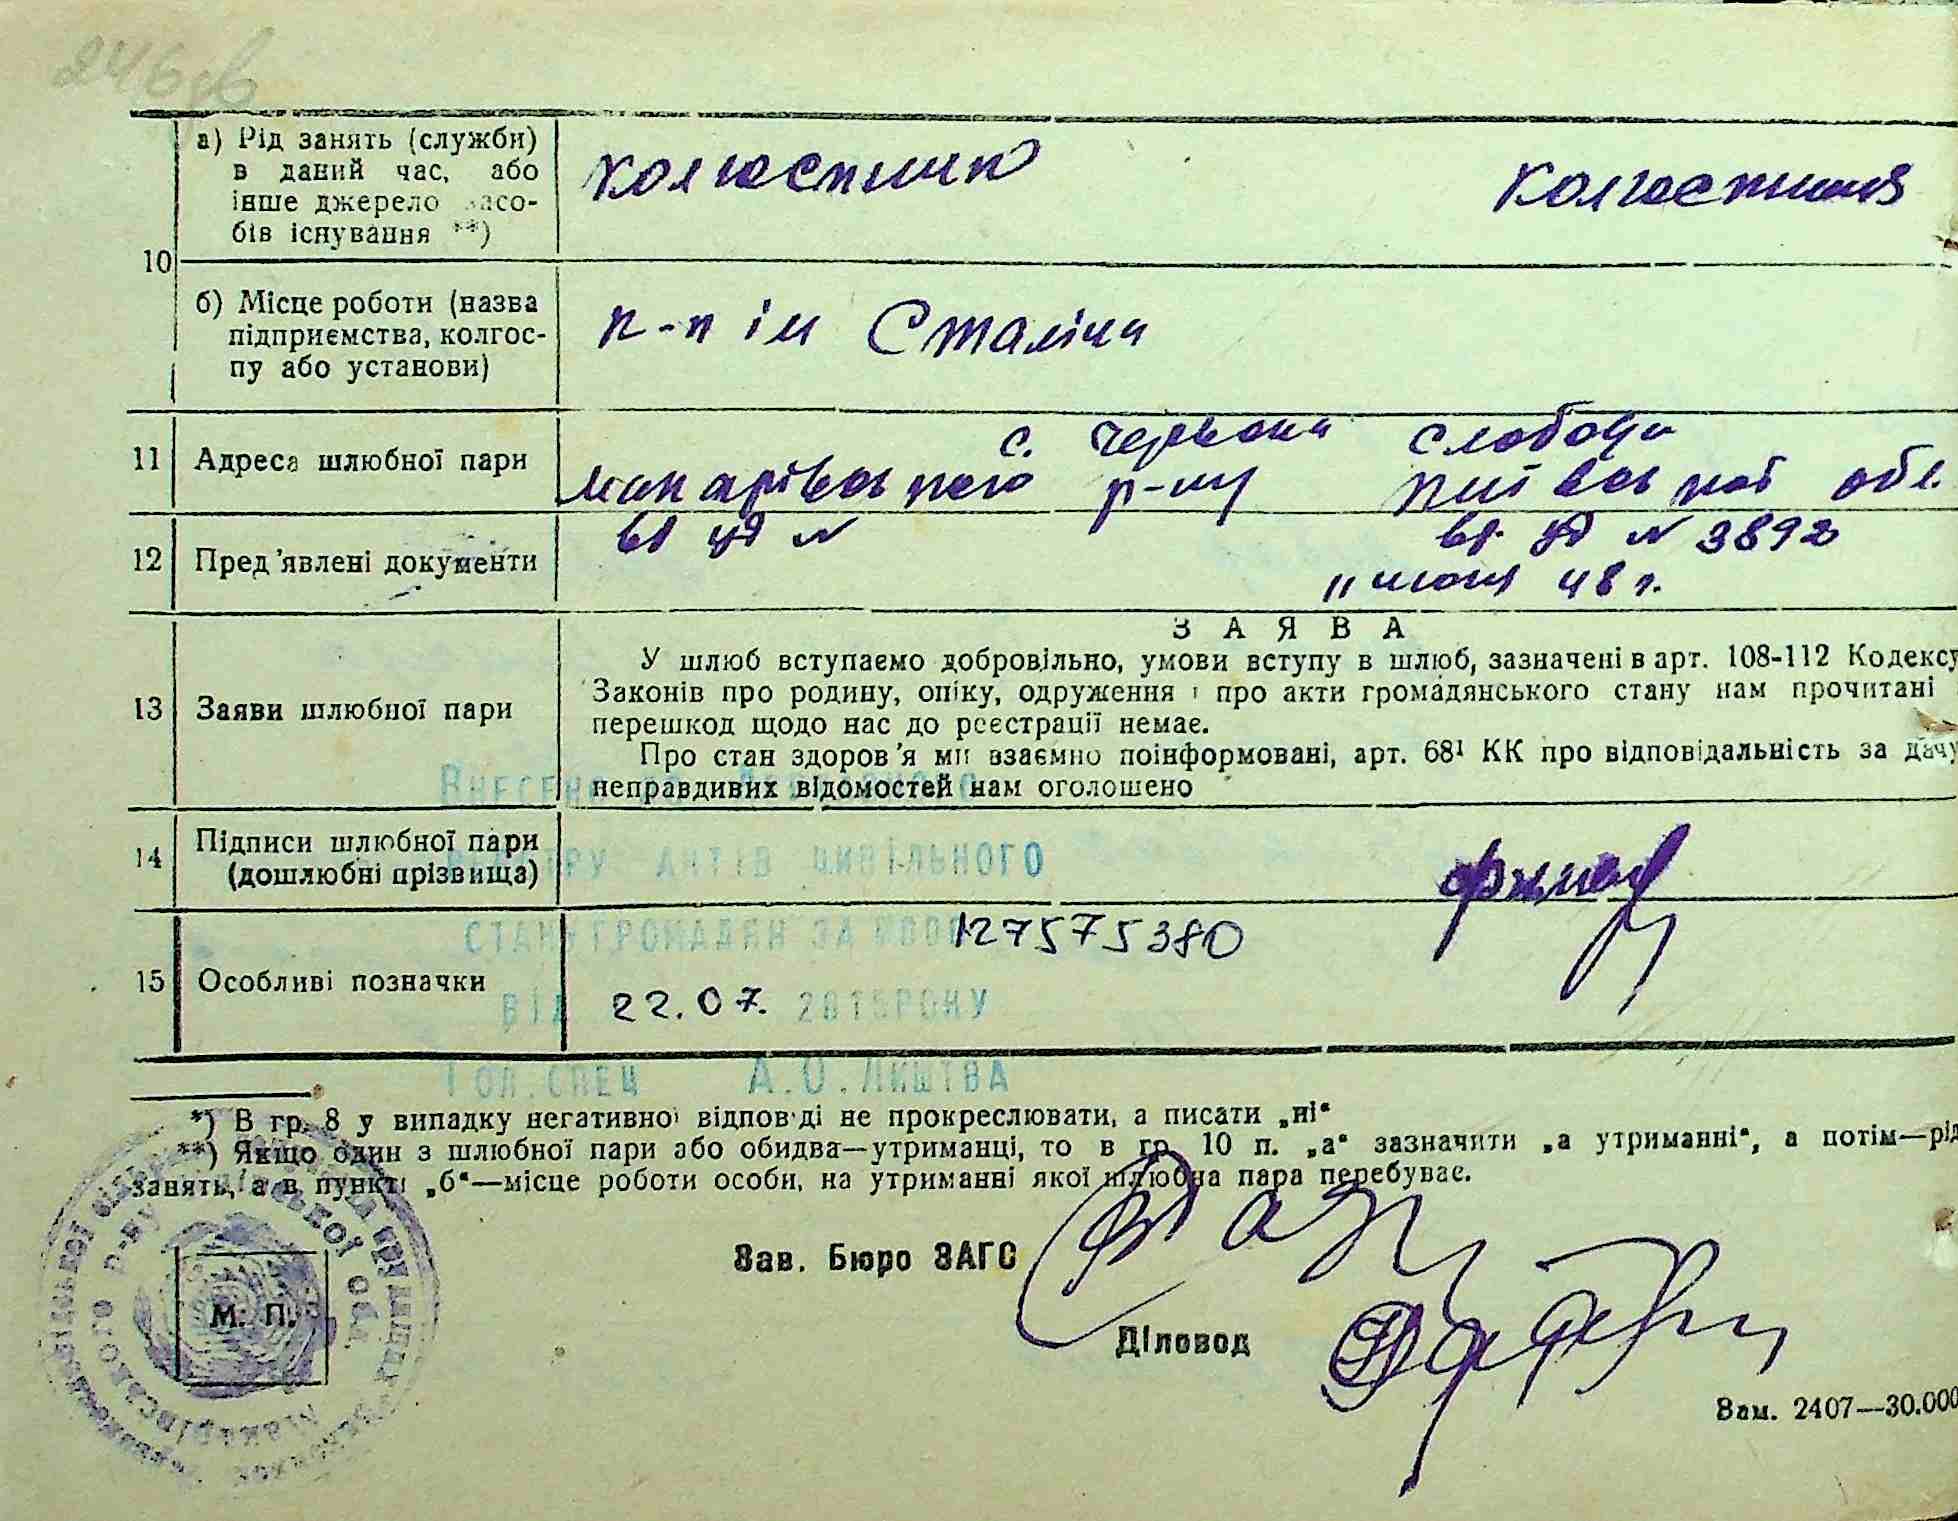 246 зв
а) Рід занять (служби)
в даний час, або
інше джерело засо-
бів існування **)
колгоспник
колгоспниця
10
б) Місце роботи (назва
підприємства, колгос-
пу або установи)
к-п ім Сталіна
11 Адреса шлюбної пари
с. Червона Слобода
Макарівського р-ну Київської обл.
12 Пред'явлені документи
вл. уд N
вл. уд N 3892
13 Заяви шлюбної пари
ЗАЯВА
У шлюб вступаємо добровільно, умови вступу в шлюб, зазначені в арт. 108-112 Кодексу
Законів про родину, опіку, одруження і про акти громадянського стану нам прочитані
перешкод щодо нас до реєстрації немає.
Про стан здоров'я ми взаємно поінформовані, арт. 68¹ КК про відповідальність за дачу
неправдивих відомостей нам оголошено
Внесено до Державного
14 Підписи шлюбної пари
(дошлюбні прізвища)
реєстру актів цивільного
стану громадян за №
127575380
15 Особливі позначки
від 22.07. 2015 року
Гол. спец А.О. Лиштва
*) В гр. 8 у випадку негативної відповіді не прокреслювати, а писати „ні“
**) Якщо один з шлюбної пари або обидва—утриманці, то в гр. 10 п. „а“ зазначити „а утриманні“, а потім—рід
занять, а в пункті „б“—місце роботи особи, на утриманні якої шлюбна пара перебуває.
Зав. Бюро ЗАГС
М. П.
Діловод
Зам. 2407—30.000